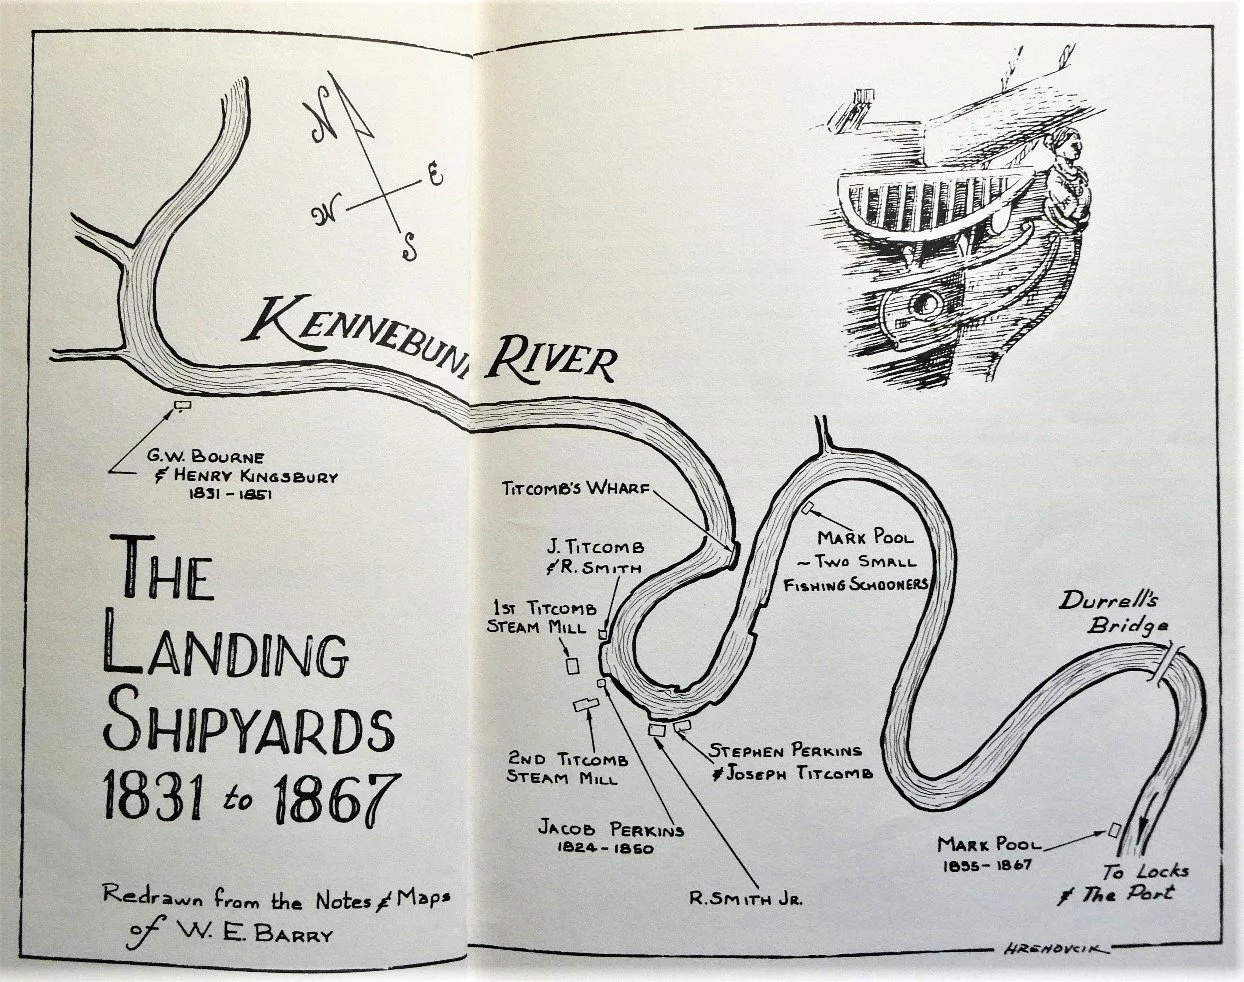 N
E
W
S
KENNEBUNK RIVER
G.W. BOURNE
& HENRY KINGSBURY
1831 - 1851
TITCOMB'S WHARF
J. TITCOMB
& R. SMITH
1ST TITCOMB
STEAM MILL
MARK POOL
~ TWO SMALL
FISHING SCHOONERS
Durrell's
Bridge
THE
LANDING
SHIPYARDS
1831 to 1867
2ND TITCOMB
STEAM MILL
STEPHEN PERKINS
& JOSEPH TITCOMB
JACOB PERKINS
1824 - 1850
R. SMITH JR.
MARK POOL
1855 - 1867
To Locks
& The Port
Redrawn from the Notes & Maps
of W. E. BARRY
HRENOVCIK